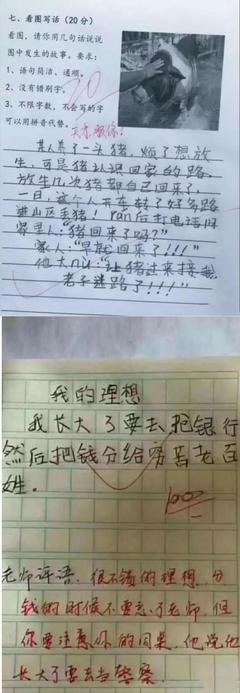 七、看图写话（20分）
看图，请你用几句话说说
图中发生的故事。要求：
1、语句简洁、通顺。
2、没有错别字。
3、不限字数，不会写的字
可以用拼音代替。
20
某人养了一头猪，烦了想放
生，可是猪认识回家的路，
放生几次猪都自己回来了，
一日，这个人开车转了好多路
进山区丢猪！ran后打电话问
家里人："猪回来了吗？"
家人："早就回来了！！！"
他大nu："让猪过来接我，
老子迷路了！！！"
我的理想
我长大了要去抢银行
然后把钱分给穷苦老百
姓。
100
老师评语：很不错的理想，分
钱的时候不要忘了老师，但
你要注意你的同桌，他说他
长大了要去当警察